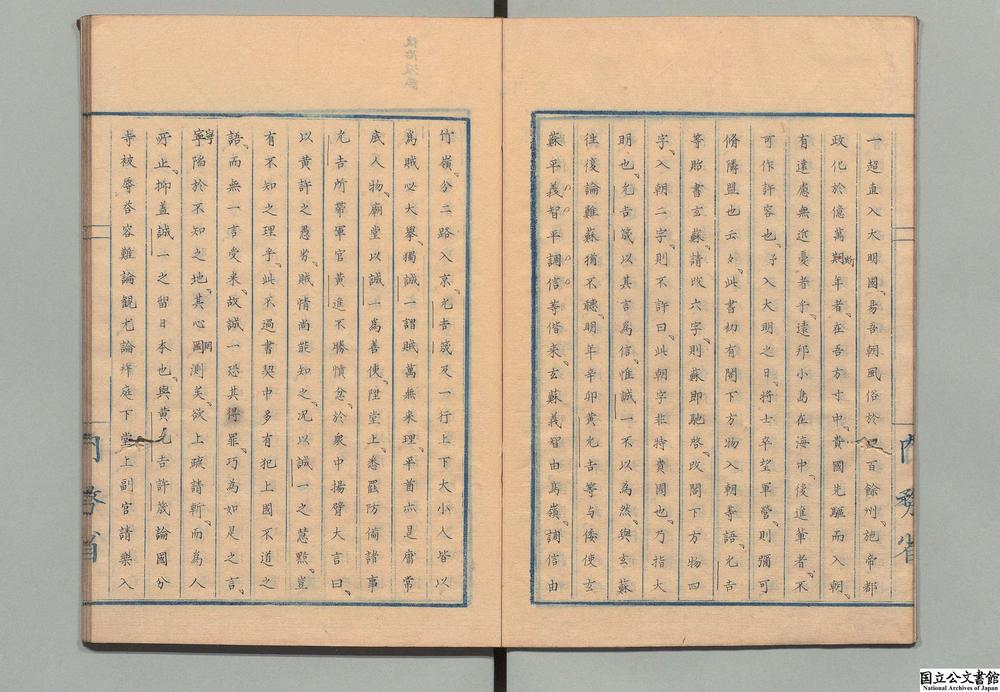 一超直入大明國易吾朝風俗於四百餘州施帝都
政化於億萬斯年者在吾方寸中貴國先驅而入朝
有遠慮無近憂者乎遠邦小島在海中後進輩者不
可作許容也予入大明之日將士卒望軍營則彌可
脩隣盟也云々此書初有閤下方物入朝等語允吉
等貽書玄蘇請改六字則蘇即馳啓改閤下方物四
字入朝二字則不許曰此朝字非特貴國也乃指大
明也允吉箴以其言為信惟誠一不以為然與玄蘇
往復論難蘇猶不聽明年辛卯黃允吉等与倭使玄
蘇平義智平調信等偕来玄蘇義智由鳥嶺調信由
竹嶺分二路入京允吉箴及一行上下大小人皆以
爲賊必大擧獨誠一謂賊萬無来理平酋亦是庸常
底人物廟堂以誠一為善使陞堂上悉罷防備諸事
允吉所帶軍官黃進不勝憤忿於衆中揚臂大言曰
以黃許之愚劣賊情尚能知之况以誠一之慧黠豈
有不知之理乎此不過書契中多有犯上國不道之
語而無一言受来故誠一恐其得罪巧為如是之言
寧陷於不知之地其心罔測矣欲上疏請斬而為人
所止抑盖誠一之留日本也與黃允吉許箴論國分
寺被辱答容難論觀光論拜庭下堂上副官請樂入
内務省
内務省
国立公文書館
National Archives of Japan